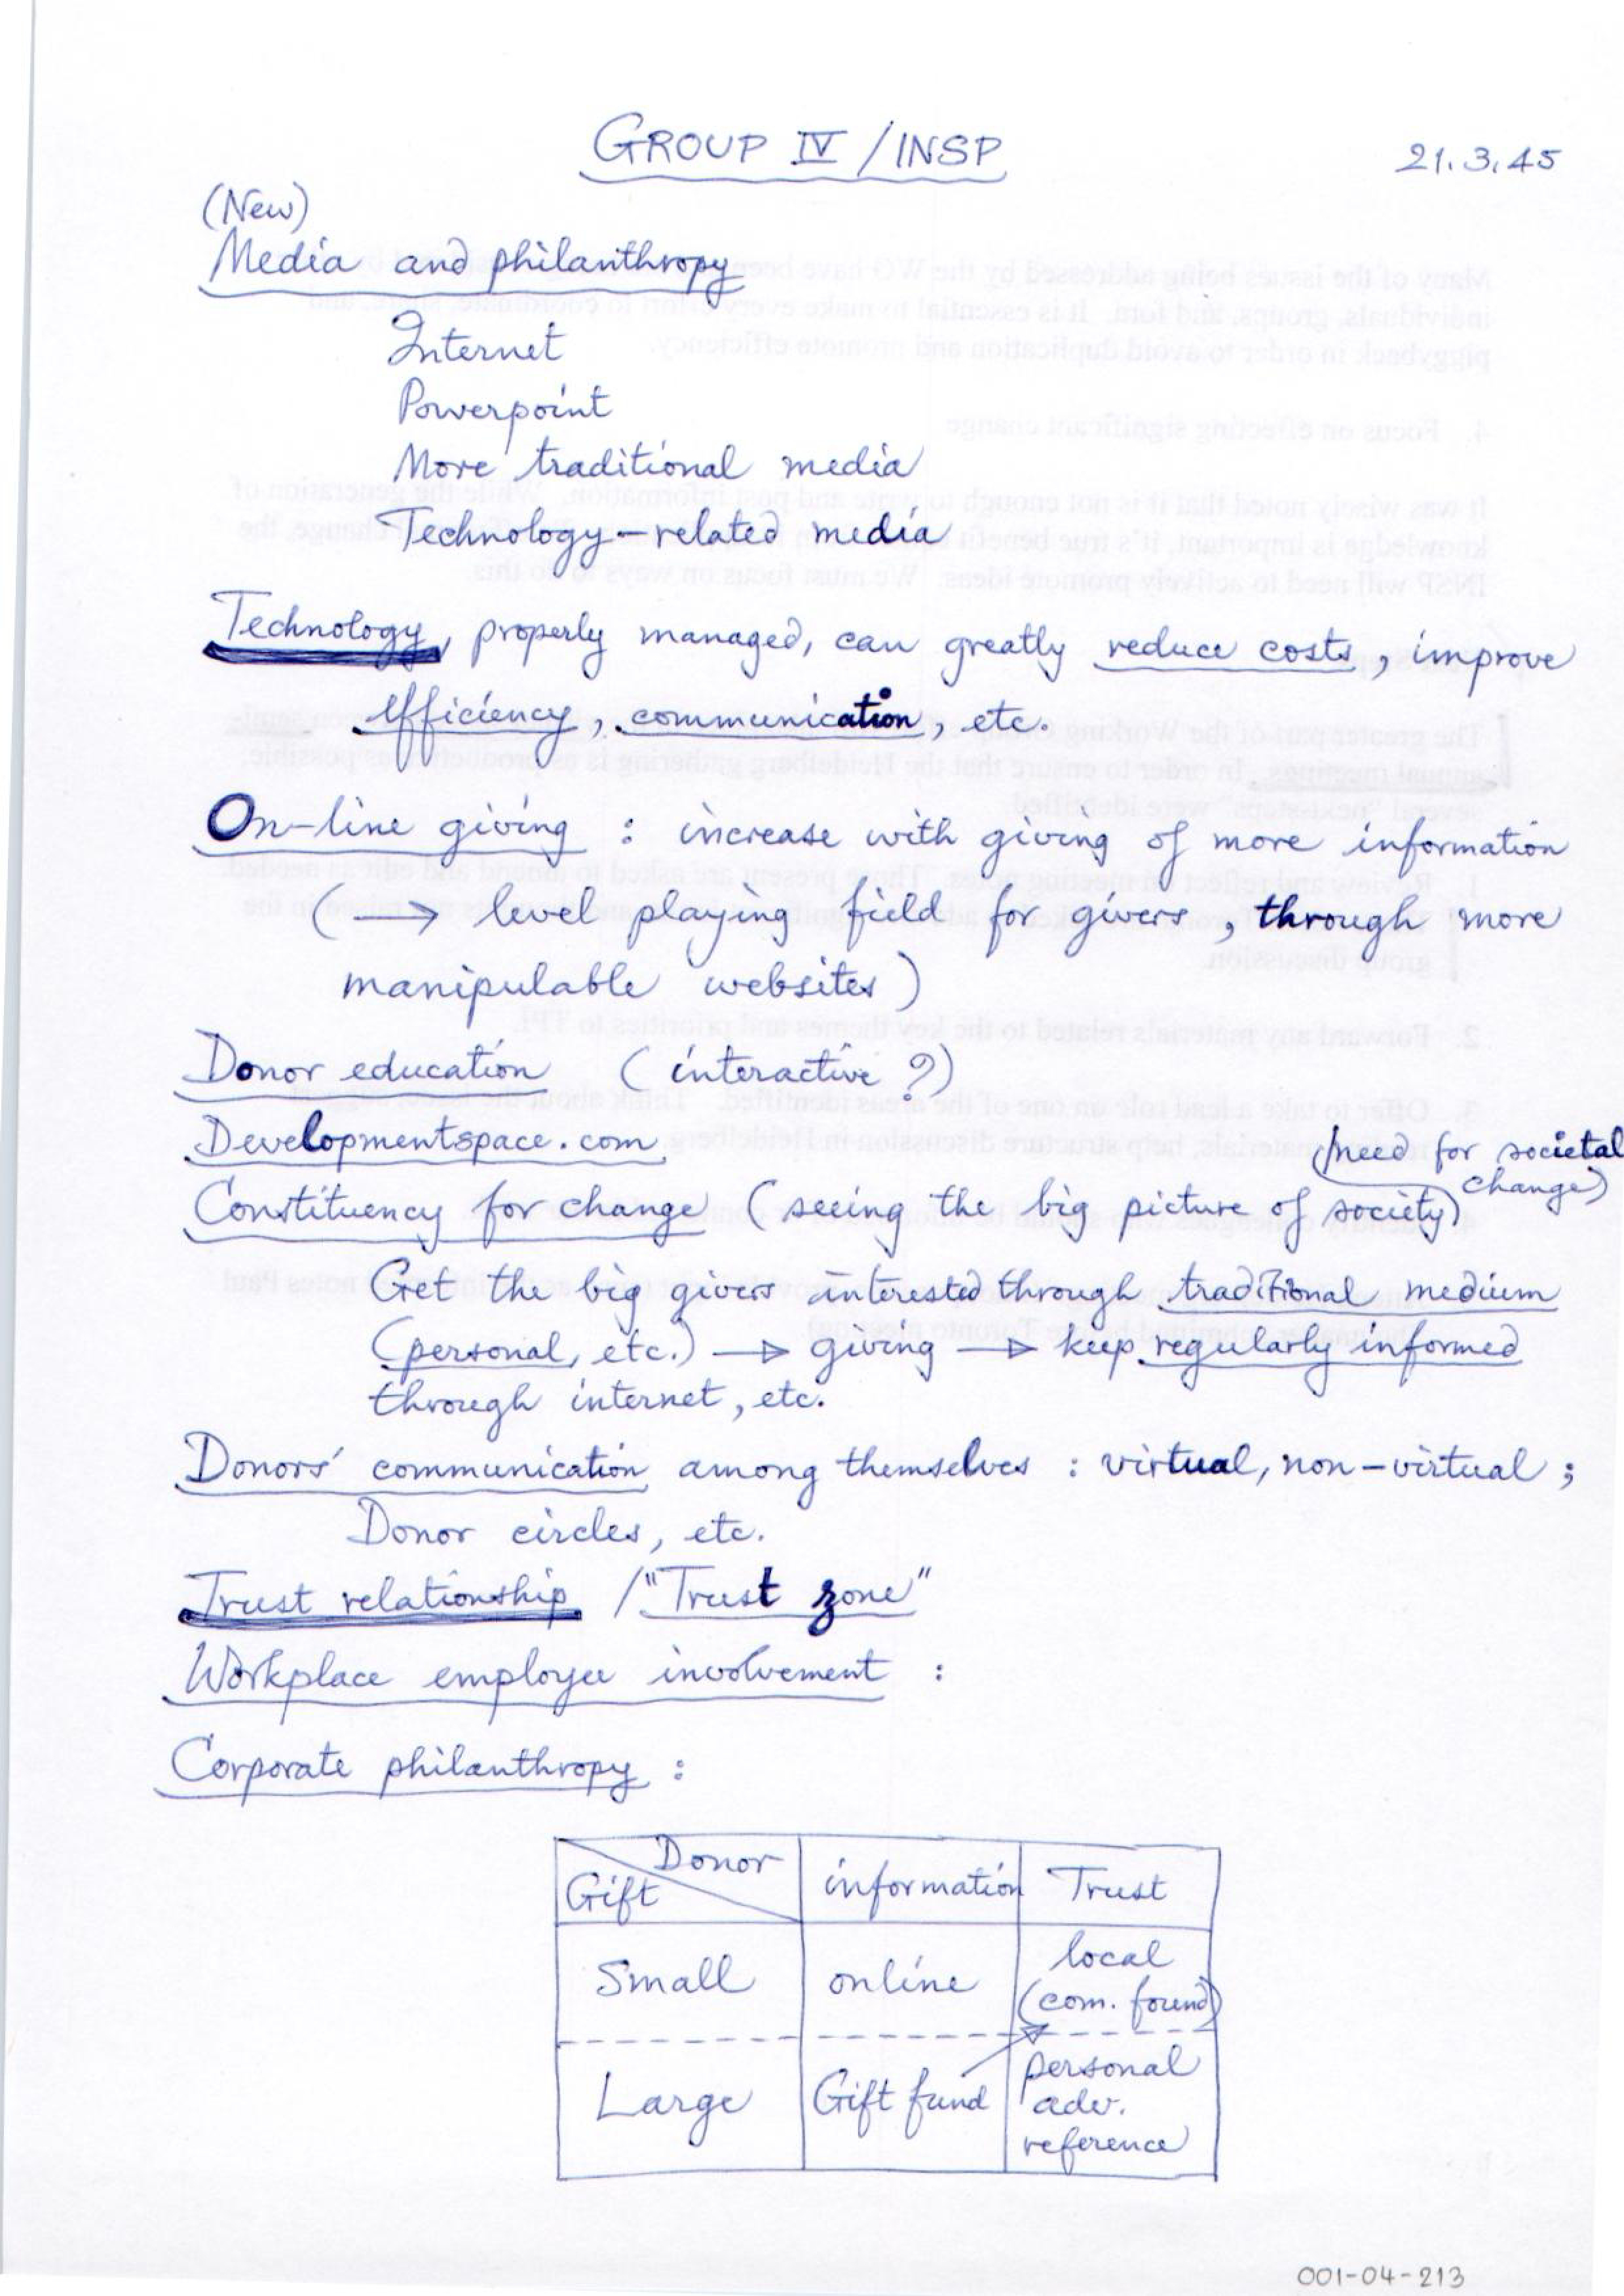 GROUP IV / INSP
21.3.45
(New)
Media and philanthropy
Internet
Powerpoint
More traditional media
Technology-related media
Technology, properly managed, can greatly reduce costs, improve
efficiency, communication, etc.
On-line giving : increase with giving of more information
(→ level playing field for givers, through more
manipulable websites)
Donor education (interactive ?)
Developmentspace.com
(need for societal
change)
Constituency for change (seeing the big picture of society)
Get the big givers interested through traditional medium
(personal, etc.) → giving → keep regularly informed
through internet, etc.
Donors' communication among themselves : virtual, non-virtual ;
Donor circles, etc.
Trust relationship / "Trust zone"
Workplace employee involvement :
Corporate philanthropy :
Donor
Gift
information
Trust
Small
online
local
(com. found)
Large
Gift fund
personal
adv.
reference
001-04-213